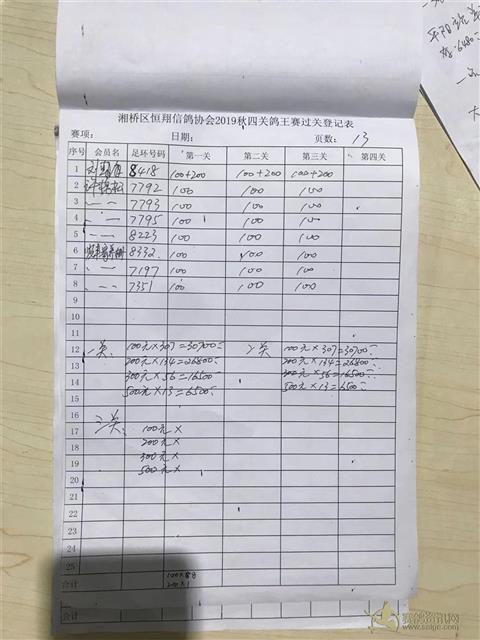 湘桥区恒翔信鸽协会2019秋四关鸽王赛过关登记表
赛项： 日期： 页数： 13
序号 会员名 足环号码 第一关 第二关 第三关 第四关
1 8418 100+200 100+200 100+200
2 7792 100 100 100
3 〃 〃 7793 100 100 100
4 〃 〃 7795 100 100 100
5 〃 〃 8223 100 100 100
6 8332 100 100 100
7 〃 〃 7197 100 100 100
8 〃 〃 7351 100 100 100
9
10
11
12 一关： 100元×307=30700 二关 100元×307=30700
13 200元×134=26800 200元×134=26800
14 300元×56=16500 300元×56=16500
15 500元×13=6500 500元×13=6500
16
17 三关： 100元×
18 200元×
19 300元×
20 500元×
21
22
23
24
25
合计 200×1
合计
赛鸽资讯网
www.saige.com